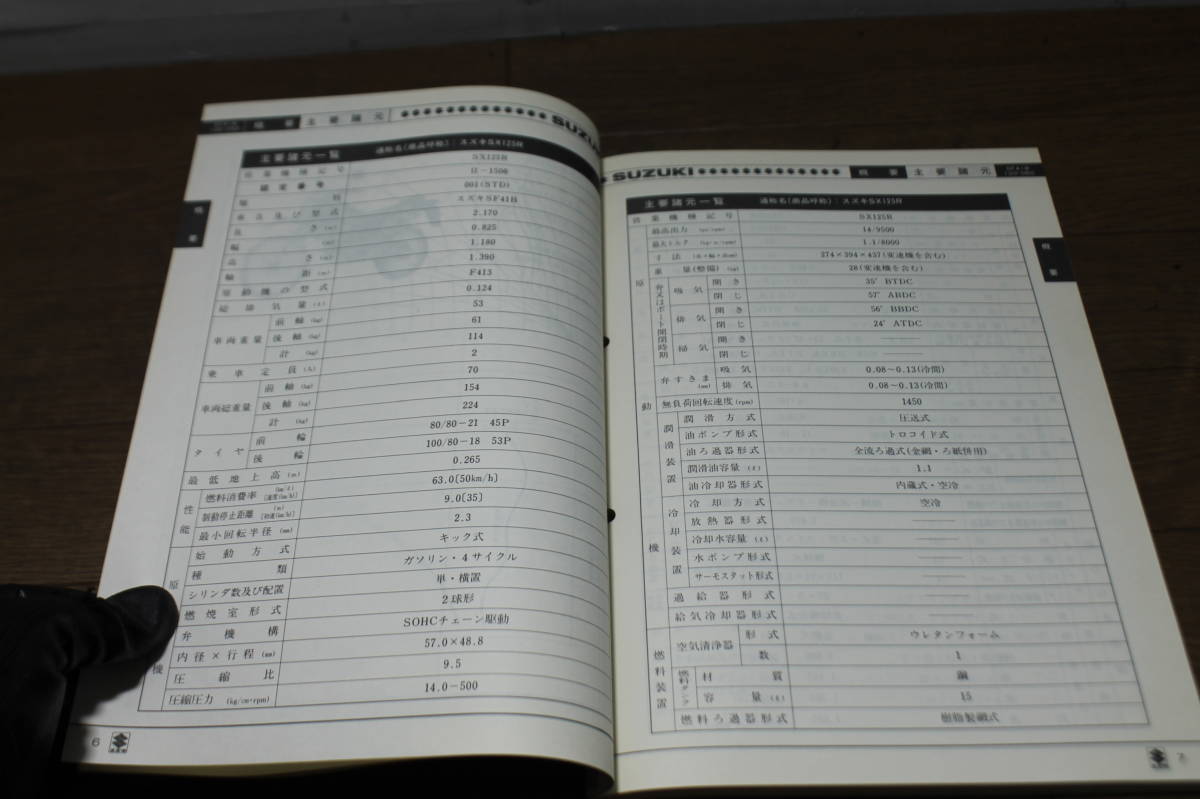 概 要 主 要 諸 元
SUZUKI
主要諸元一覧 通称名(商品呼称):スズキSX125R
営業機種記号 SX125R
認定番号 II-1506
類 別 001(STD)
車名及び型式 スズキSF41B
長 さ (m) 2.170
幅 (m) 0.825
高 さ (m) 1.180
軸 距 (m) 1.390
原動機の型式 F413
総排気量 (ℓ) 0.124
車両重量 前軸 (kg) 53
後軸 (kg) 61
計 (kg) 114
乗車定員 (人) 2
車両総重量 前軸 (kg) 70
後軸 (kg) 154
計 (kg) 224
タイヤ 前輪 80/80-21 45P
後輪 100/80-18 53P
最低地上高 (m) 0.265
性能 燃料消費率 (km/ℓ) [速度km/h] 63.0[50km/h]
制動停止距離 (m) [初速km/h] 9.0[35]
最小回転半径 (mm) 2.3
原 始動方式 キック式
種 類 ガソリン・4サイクル
シリンダ数及び配置 単・横置
燃焼室形式 2球形
弁機構 SOHCチェーン駆動
内径×行程 (mm) 57.0×48.8
機 圧縮比 9.5
圧縮圧力 (kg/cm・rpm) 14.0-500
6
概要
SUZUKI 概 要 主 要 諸 元
主要諸元一覧 通称名(商品呼称):スズキSX125R
営業機種記号 SX125R
最高出力 (ps/rpm) 14/9500
最大トルク (kg・m/rpm) 1.1/8000
寸法 (長×幅×高cm) 274×394×437(変速機を含む)
重量(整備) (kg) 28(変速機を含む)
原 弁又はポート開閉時期 吸気 開き 35°BTDC
閉じ 57°ABDC
排気 開き 56°BBDC
閉じ 24°ATDC
掃気 開き ———
閉じ
弁すきま (mm) 吸気 0.08~0.13(冷間)
排気 0.08~0.13(冷間)
動 無負荷回転速度 (rpm) 1450
潤滑装置 潤滑方式 圧送式
油ポンプ形式 トロコイド式
油ろ過器形式 全流ろ過式(金網・ろ紙併用)
潤滑油容量 (ℓ) 1.1
油冷却器形式 内蔵式・空冷
冷却装置 冷却方式 空冷
放熱器形式
冷却水容量 (ℓ) ———
水ポンプ形式
サーモスタット形式
機 過給器形式
給気冷却器形式 ———
燃料装置 空気清浄器 形式 ウレタンフォーム
数 1
燃料タンク 材質 鋼
容量 (ℓ) 15
燃料ろ過器形式 樹脂製網式
概要
7